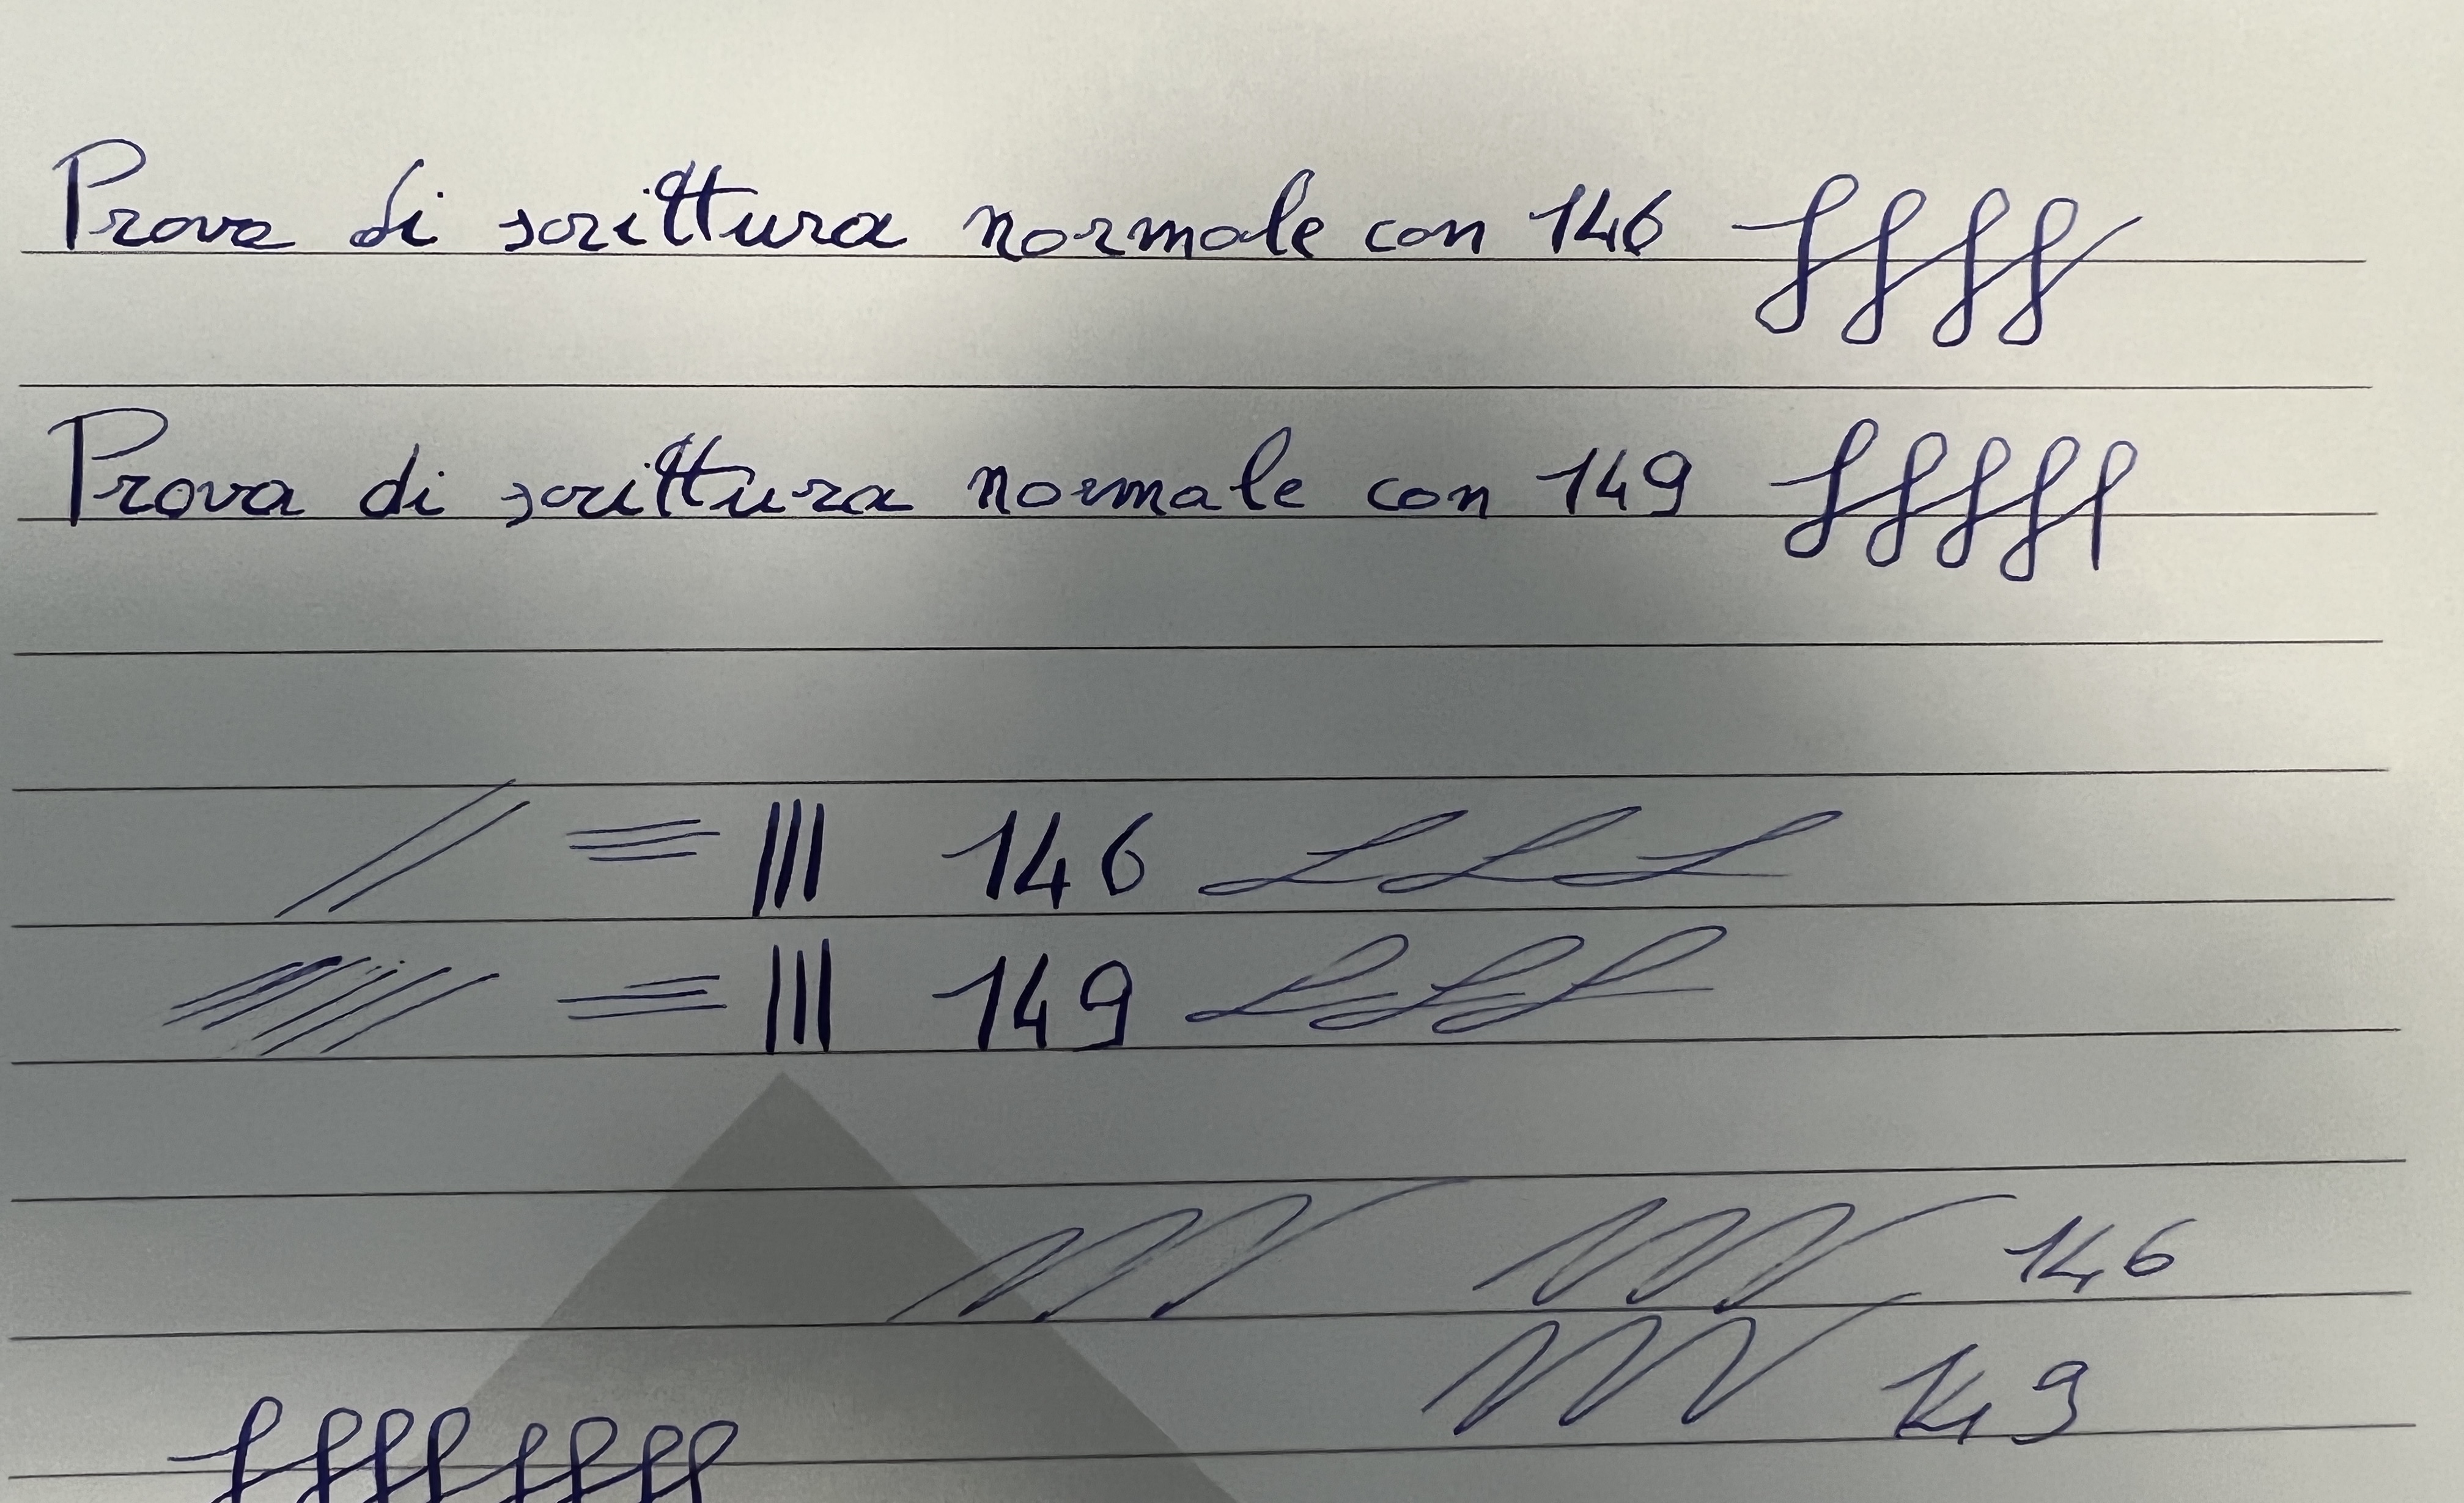 Prova di scrittura normale con 146
Prova di scrittura normale con 149
146
149
146
149